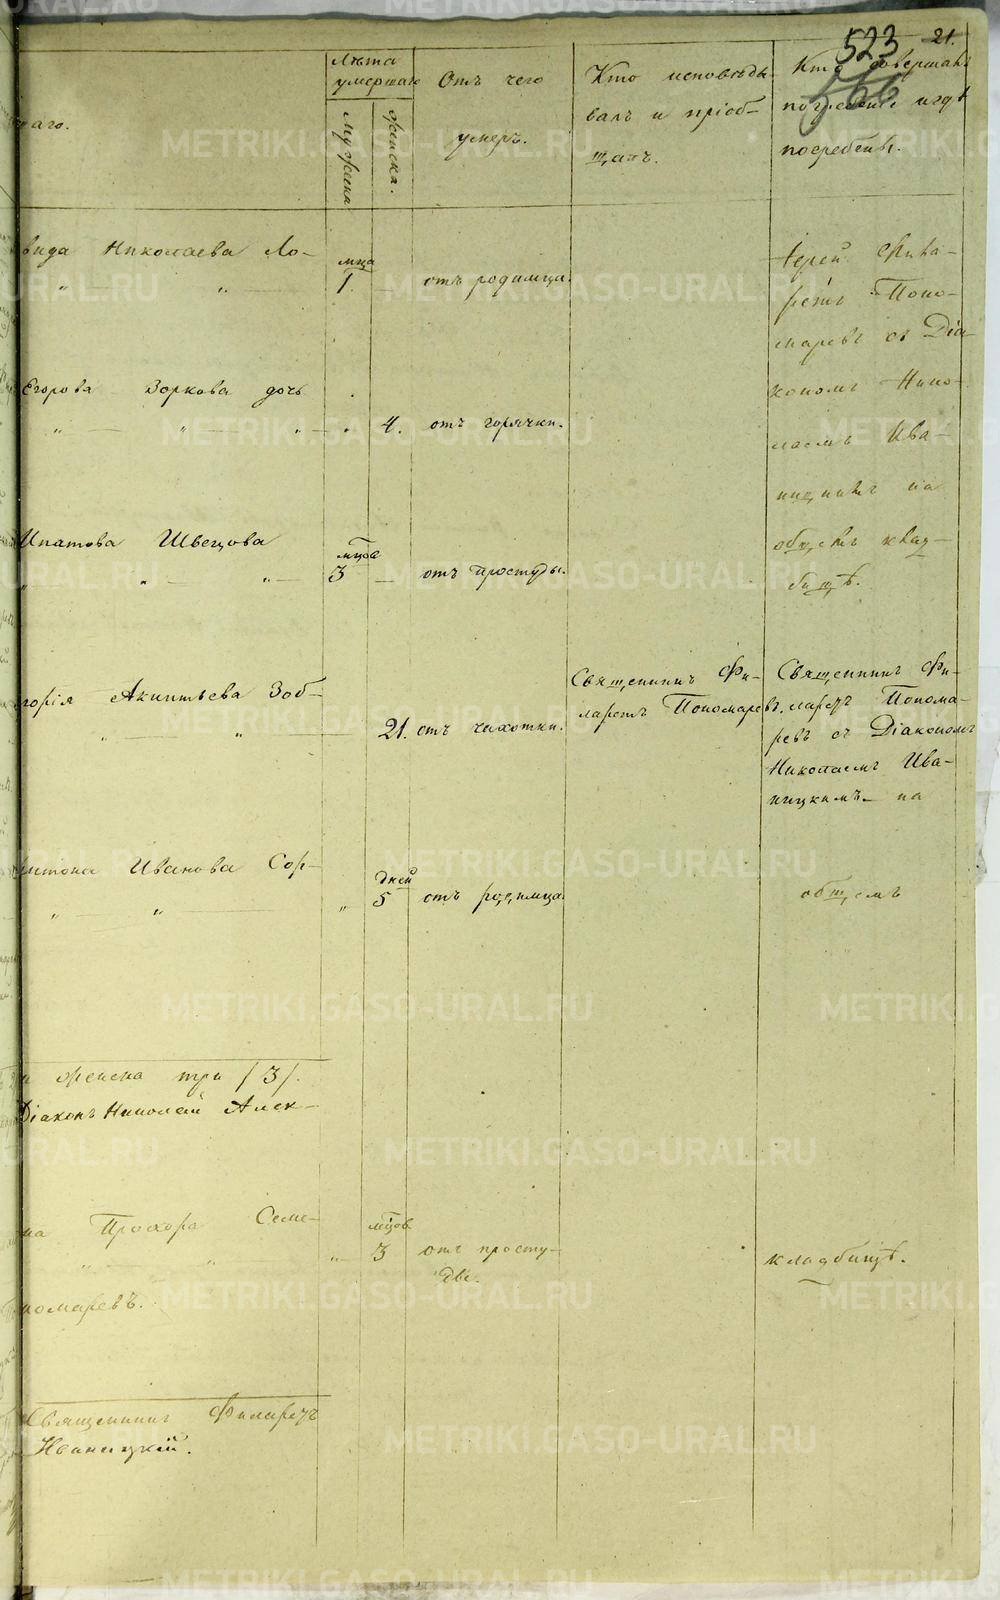 523 21.
566
Лѣта
умершаго
Отъ чего
умеръ.
Кто исповѣды
валъ и пріоб-
щалъ.
Кто совершалъ
погребеніе и гдѣ
погребены.
Мужеска
женска.
наго.
вида Николаева Ло-
мца
1 — отъ родимца.
Іерей Фила-
ретъ Поно-
маревъ съ Діа-
кономъ Нико-
лаемъ Ива-
ницкимъ на
общемъ клад-
бищѣ.
Егорова Зоркова дочь
4. отъ горячки.
Ипатова Швецова
мцов
3 — отъ простуды.
горія Акинтьева Зоб-
21. отъ чихотки.
Священникъ Фи-
ларетъ Пономаревъ.
Священникъ Фи-
ларетъ Понома-
ревъ съ Діакономъ
Николаемъ Ива-
ницкимъ — на
общемъ
Иванова Сор-
дней
5 отъ родимца
и женска три /3/.
Діаконъ Николай Алек-
на Прохора Семе-
мцов
3 отъ просту-
ды.
кладбищѣ.
номаревъ.
Священникъ Филаретъ
Иваницкій.
METRIKI.GASO-URAL.RU